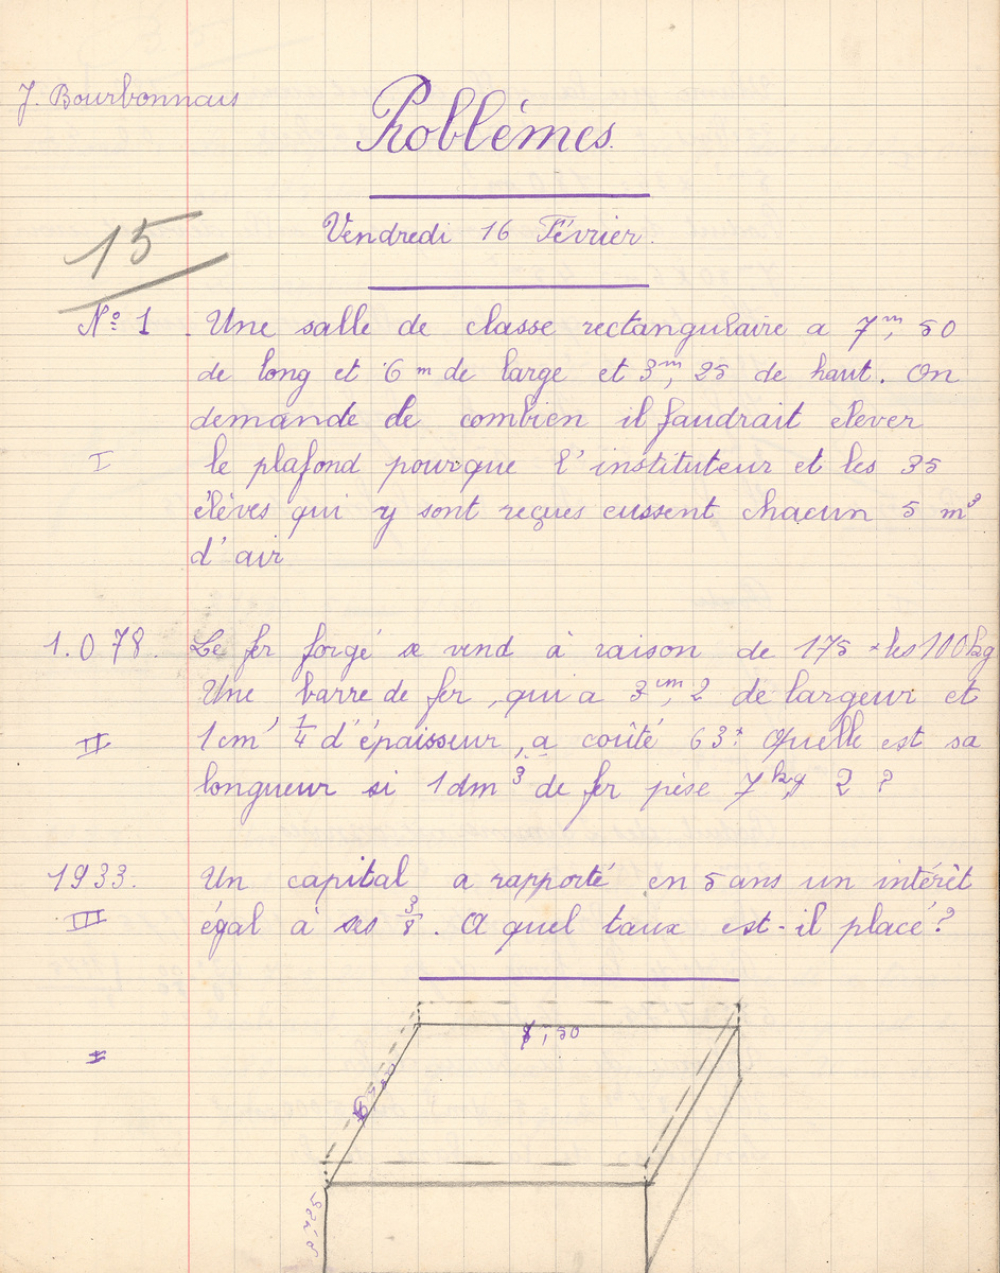 J. Bourbonnais
Problèmes.
15
Vendredi 16 Février.
N° 1. Une salle de classe rectangulaire a 7m,50
de long et 6m de large et 3m,25 de haut. On
demande de combien il faudrait elever
I le plafond pourque l'instituteur et les 35
élèves qui y sont reçus eussent chacun 5 m³
d'air
1.078. Le fer forgé se vend à raison de 175f les 100kg
Une barre de fer, qui a 3cm,2 de largeur et
II 1cm 1/4 d'épaisseur, a coûté 63f. Quelle est sa
longueur si 1dm³ de fer pèse 7kg,2 ?
1933. Un capital a rapporté en 5 ans un intérêt
III égal à ses 3/8. A quel taux est-il placé ?
I
,50
3,25